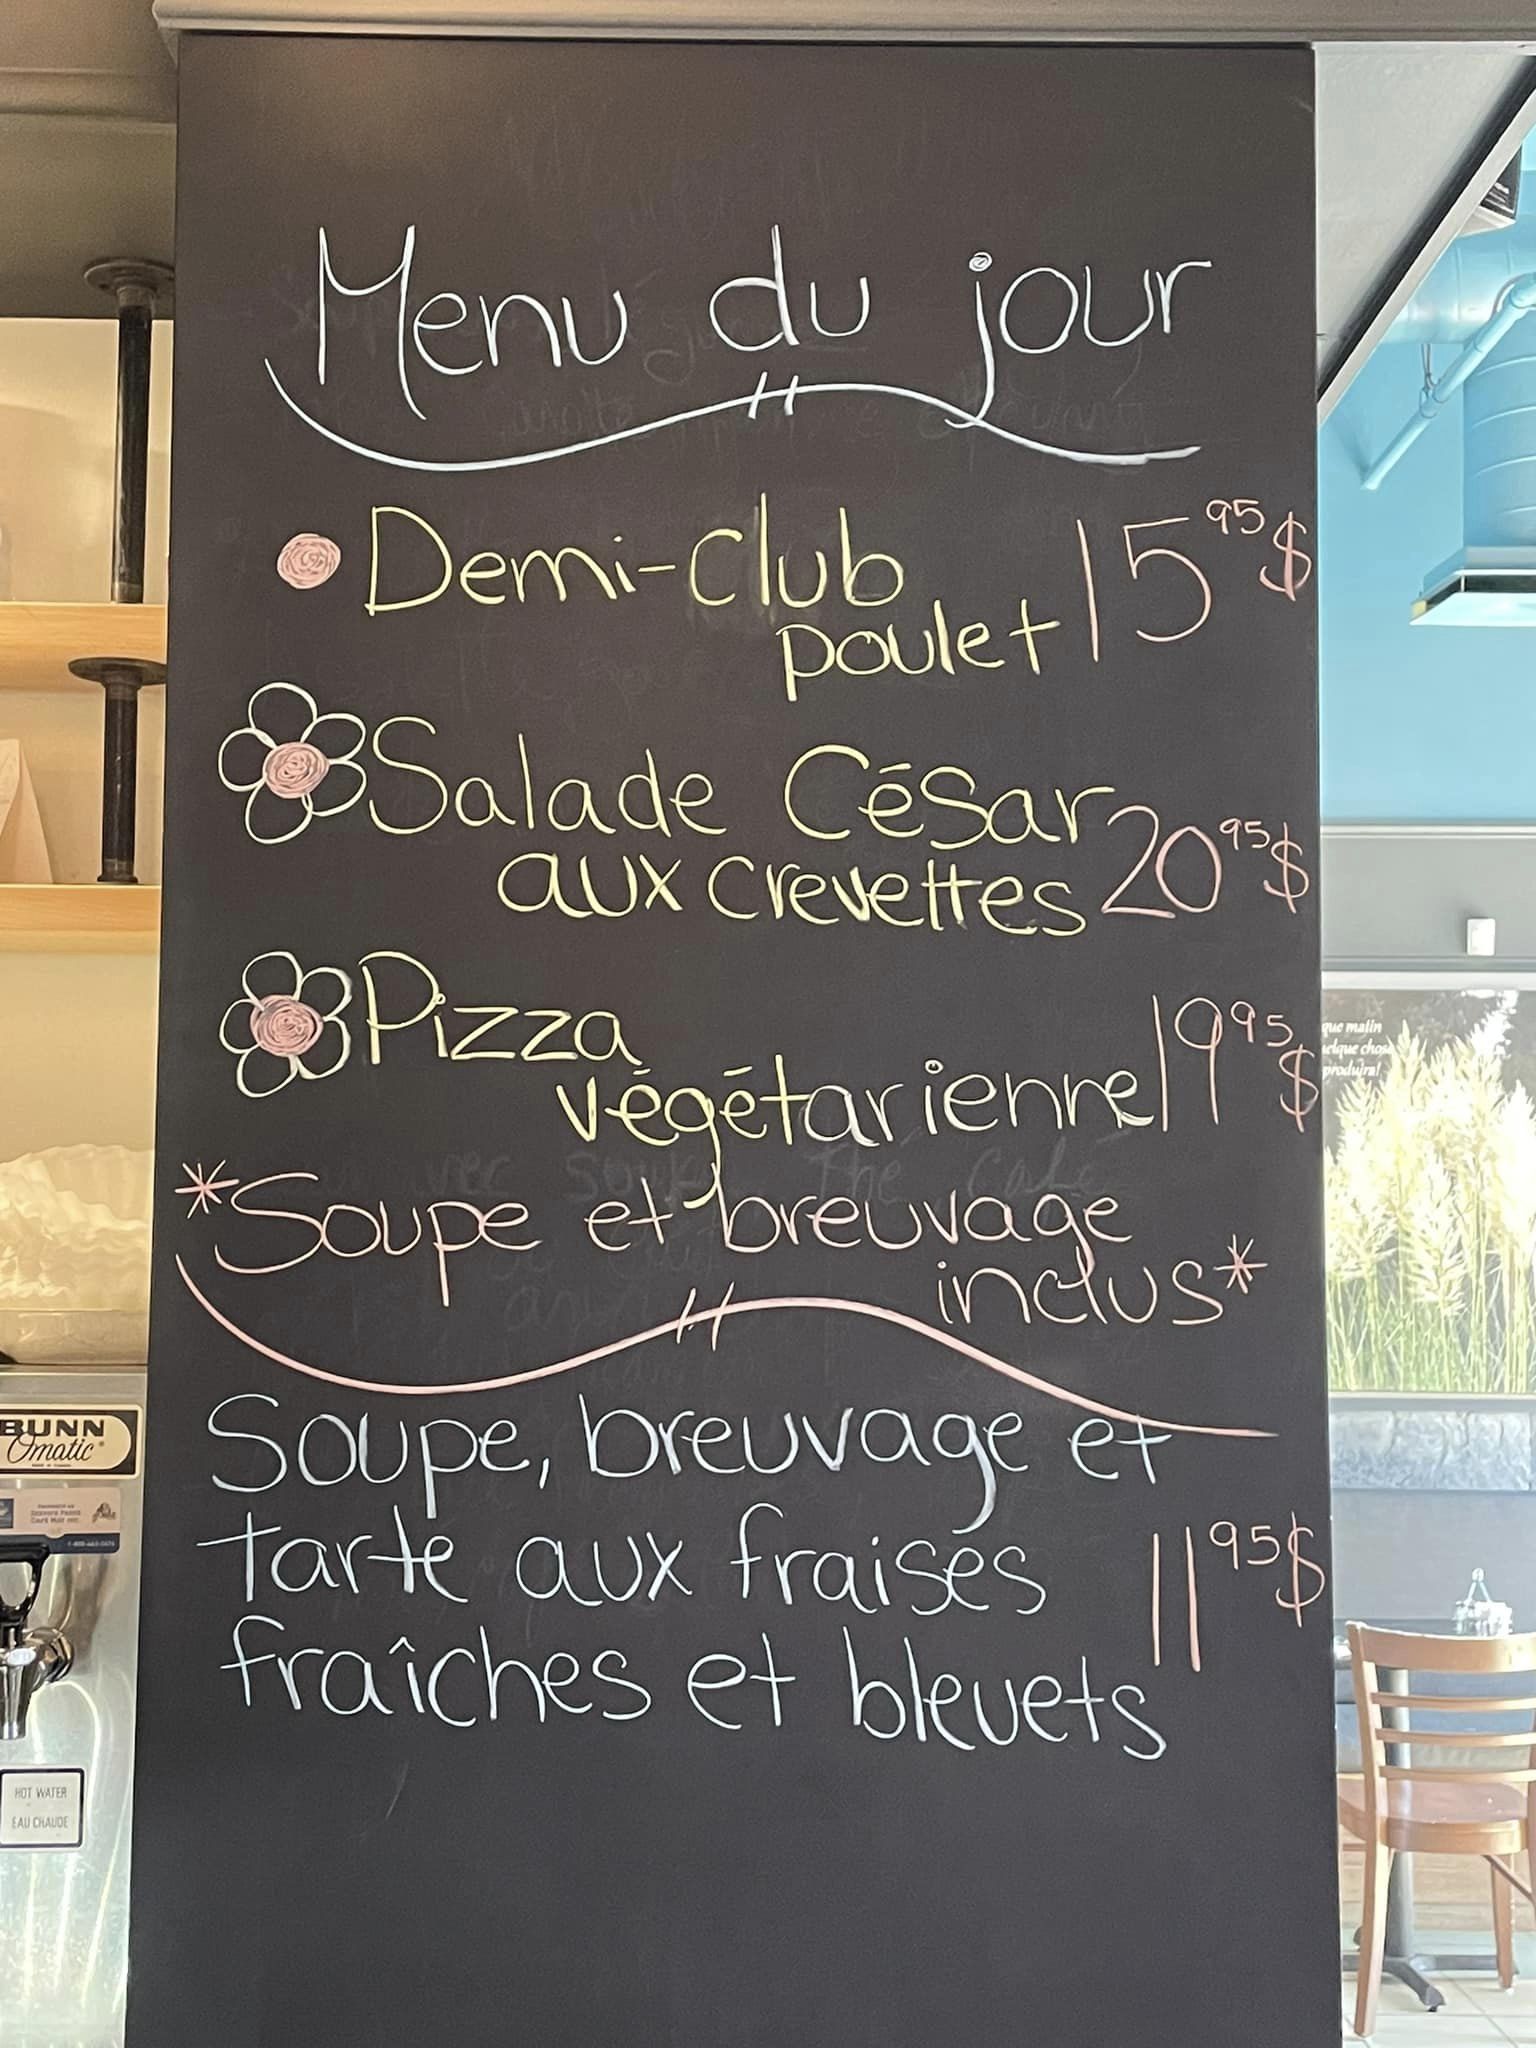 Menu du jour
Demi-club
poulet 15 95 $
Salade César
aux crevettes 20 95 $
Pizza
végétarienne 19 95 $
*Soupe et breuvage
inclus*
Soupe, breuvage et
tarte aux fraises
fraîches et bleuets 11 95 $
BUNN
Omatic®
HOT WATER
EAU CHAUDE
que matin
elque chose
produira!